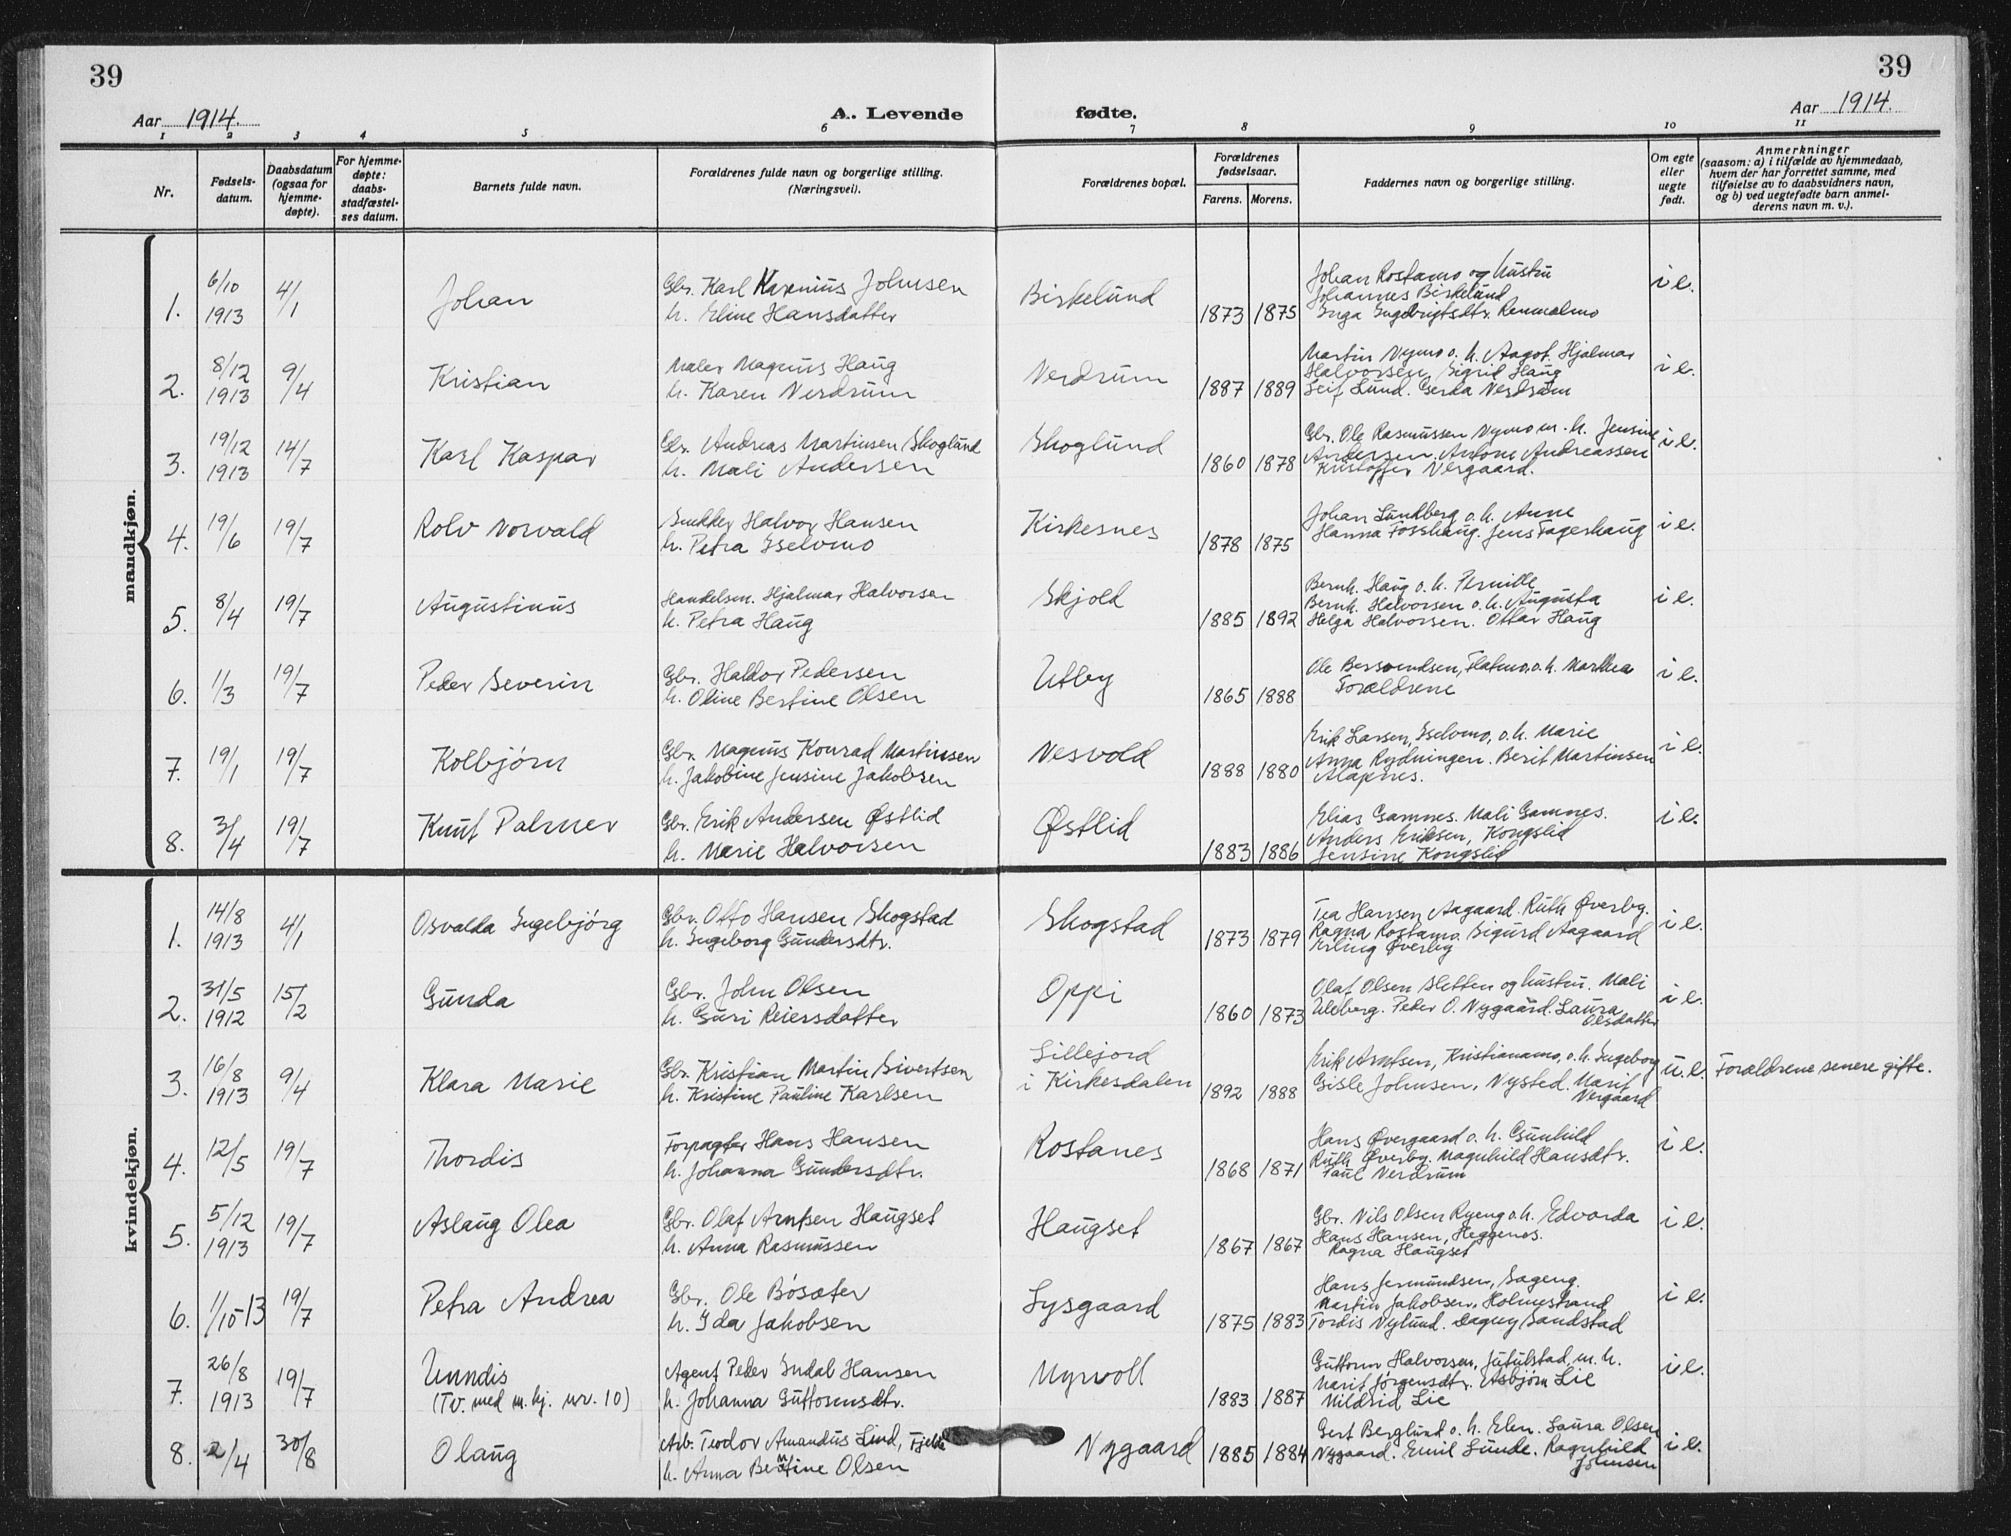 39
39
Aar 1914.
A. Levende fødte.
Aar 1914.
1 2 3 4 5 6 7 8 9 10 11
Nr.
Fødsels-
datum.
Daabsdatum
(ogsaa for
hjemme-
døpte).
For hjemme-
døpte:
daabs-
stadfæstel-
ses datum.
Barnets fulde navn.
Forældrenes fulde navn og borgerlige stilling.
(Næringsvei).
Forældrenes bopæl.
Forældrenes
fødselsaar.
Farens. Morens.
Faddernes navn og borgerlige stilling.
Om egte
eller
uegte
født.
Anmerkninger
(saasom: a) i tilfælde av hjemmedaab,
hvem der har forrettet samme, med
tilføielse av to daabsvidners navn,
og b) ved uegtefødte barn anmel-
derens navn m. v.).
mandkjøn.
1. 6/10 1913 4/1 Johan
Gbr. Karl Johnsen
h. Eline Hansdatter
Birkelund 1873 1875
Johan Rostamo og hustru
Johannes Birkelund
Inga Engebrigtsdtr. Renmælmo
i e.
2. 8/12 1913 9/4 Kristian
Maler Magnus Haug
h. Karen Nerdrum
Nerdrum 1887 1889
Martin Nymo o. h. Aagot. Hjalmar
Halvorsen, Sigrid Haug
Leif Lund. Gerda Nerdrum
i e.
3. 19/12 1913 14/7 Karl Kaspar
Gbr. Andreas Martinsen Skoglund
h. Mali Andersen
Skoglund 1860 1878
Gbr. Ole Rasmussen Nymo m. h. Jensine
Andersen. Antoni Andreassen
Kristoffer Nergaard.
i e.
4. 19/6 19/7 Rolv Norvald
Snekker Halvor Hansen
h. Petra Iselvmo
Kirkesnes 1878 1875
Johan Lundberg o. h. Anne
Hanna Fosshaug. Jens Fagerhaug
i e.
5. 8/4 19/7 Augustinus
Handelsm. Hjalmar Halvorsen
h. Petra Haug
Skjold 1885 1892
Bernh. Haug o. h. Pernille
Bernh. Halvorsen o. h. Augusta
Helga Halvorsen. Ottar Haug
i e.
6. 1/3 19/7 Peder Severin
Gbr. Haldor Pedersen
h. Oline Bertine Olsen
Utby 1865 1888
Ole Bersvendsen, Flatmo, o. h. Marthea
Forældrene
i e.
7. 19/1 19/7 Kolbjørn
Gbr. Magnus Konrad Martinsen
h. Jakobine Jensine Jakobsen
Nesvold 1888 1880
Erik Larsen, Iselvmo, o. h. Marie
Anna Rydningen. Berit Martinsen
Alapnes.
i e.
8. 3/4 19/7 Knut Palmer
Gbr. Erik Andersen Østlid
h. Marie Halvorsen
Østlid 1883 1886
Elias Gamnes. Mali Gamnes.
Anders Eriksen, Kongslid
Jensine Kongslid
i e.
kvindekjøn.
1. 14/8 1913 4/1 Osvalda Ingebjørg
Gbr. Otto Hansen Skogstad
h. Ingeborg Gundersdtr.
Skogstad 1873 1879
Tea Hansen Aagaard. Ruth Øverby.
Ragna Rostamo. Sigurd Aagaard
Erling Øverby
i e.
2. 31/5 1912 15/2 Gunda
Gbr. John Olsen
h. Guri Reiersdatter
Oppi 1860 1873
Olaf Olsen Sletten og hustru. Mali
Uleberg. Peder O. Nygaard. Laura
Olsdatter
i e.
3. 16/8 1913 9/4 Klara Marie
Gbr. Kristian Martin Sivertsen
h. Kristine Pauline Karlsen
Lillejord
i Kirkesdalen 1892 1888
Erik Arntsen, Kristianamo, o. h. Ingeborg
Gisle Johnsen, Nysted. Marit
Nergaard
u. e. Forældrene senere gifte.
4. 12/5 19/7 Thordis
Forpagter Hans Hansen
h. Johanna Gundersdtr.
Rostanes 1868 1871
Hans Øvergaard o. h. Gunhild
Ruth Øverby. Magnhild Hansdtr.
Paul Nerdrum
i e.
5. 5/12 1913 19/7 Aslaug Olea
Gbr. Olaf Arntsen Haugset
h. Anna Rasmussen
Haugset 1867 1867
Gbr. Nils Olsen Ryeng o. h. Edvarda
Hans Hansen, Heggenes.
Ragna Haugset
i e.
6. 1/10-13 19/7 Petra Andrea
Gbr. Ole Bøsæter
h. Ida Jakobsen
Lysgaard 1875 1883
Hans Jermundsen, Sageng.
Martin Jakobsen, Holmestrand
Tordis Nylund. Dagny Sandstad
i e.
7. 26/8 1913 19/7 Unndis
(Tv. med m. kj. nr. 10)
Agent Peder Indal Hansen
h. Johanna Guttormsdtr.
Myrvoll 1883 1887
Guttorm Halvorsen, Jutulstad, m. h.
Marit Jørgensdtr. Asbjørn Lie
Mildrid Lie
i e.
8. 2/4 30/8 Olaug
Arb. Teodor Amandus Lind, Fjeld
h. Anna Olsen
Nygaard 1885 1884
Gert Berglund o. h. Elen. Laura Olsen
Nygaard. Emil Lunde. Ragnhild
Johnsen
i e.